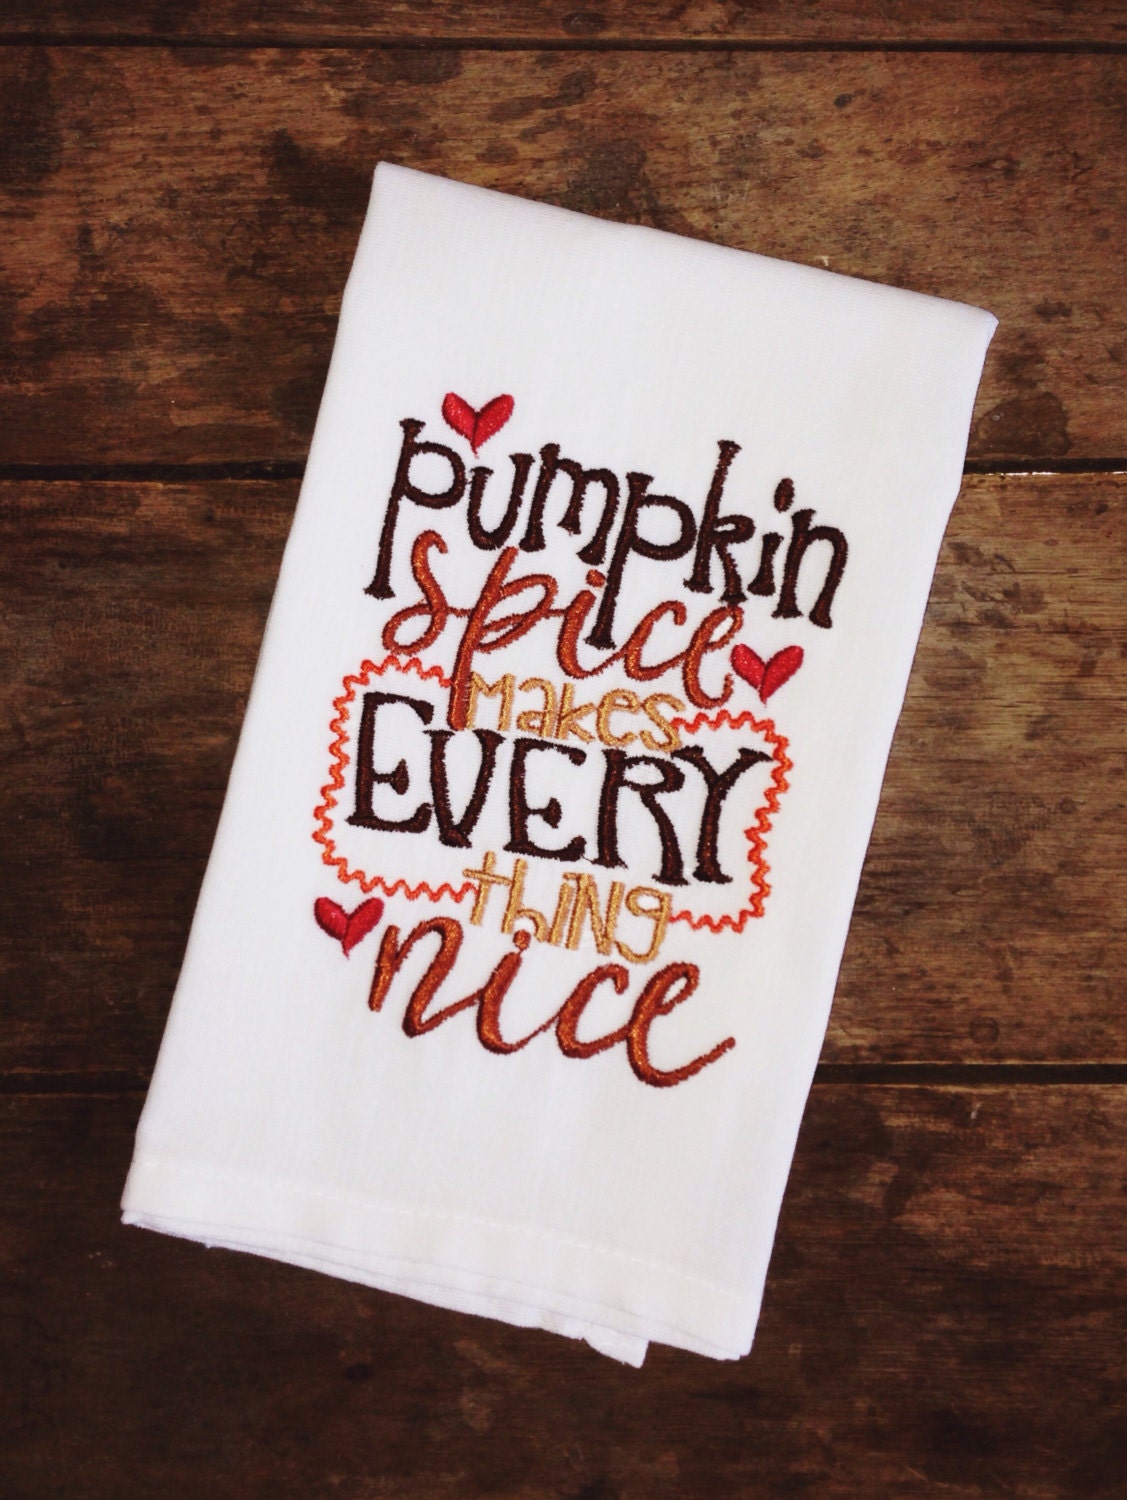 pumpkin
spice
makes
EVERY
thiNg
nice